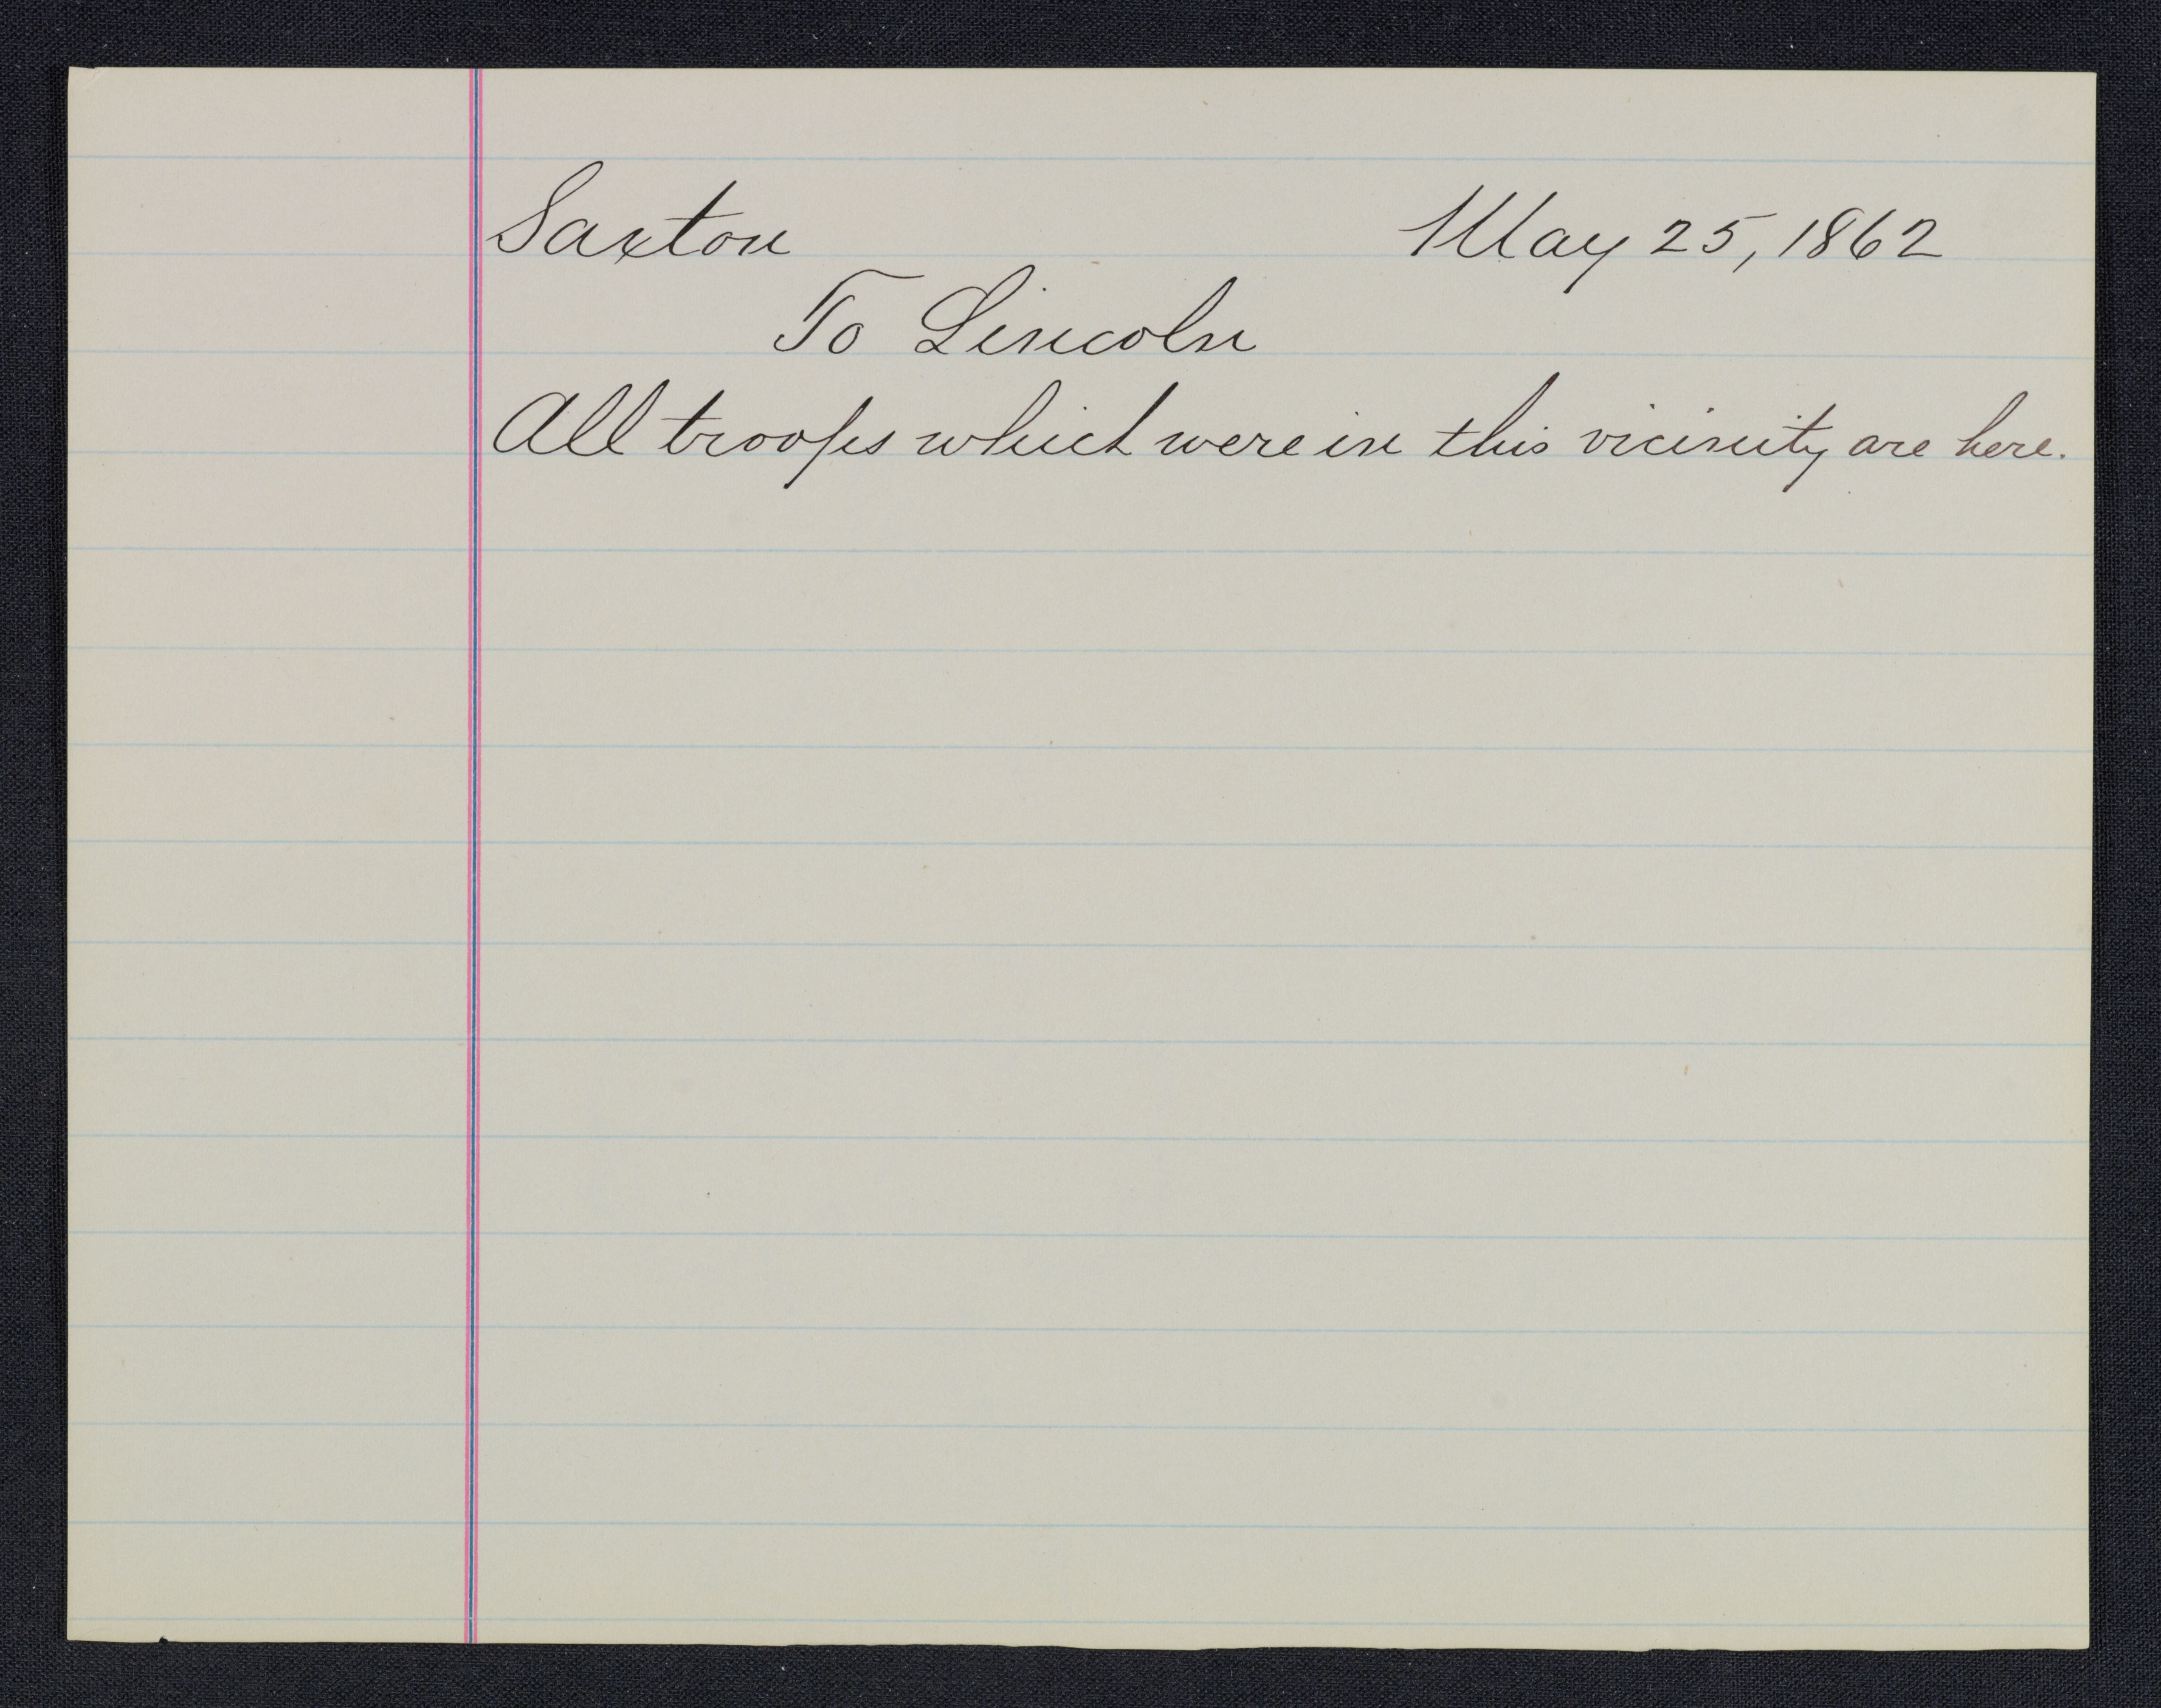 Saxton May 25, 1862
To Lincoln
All troops which were in this vicinity are here.